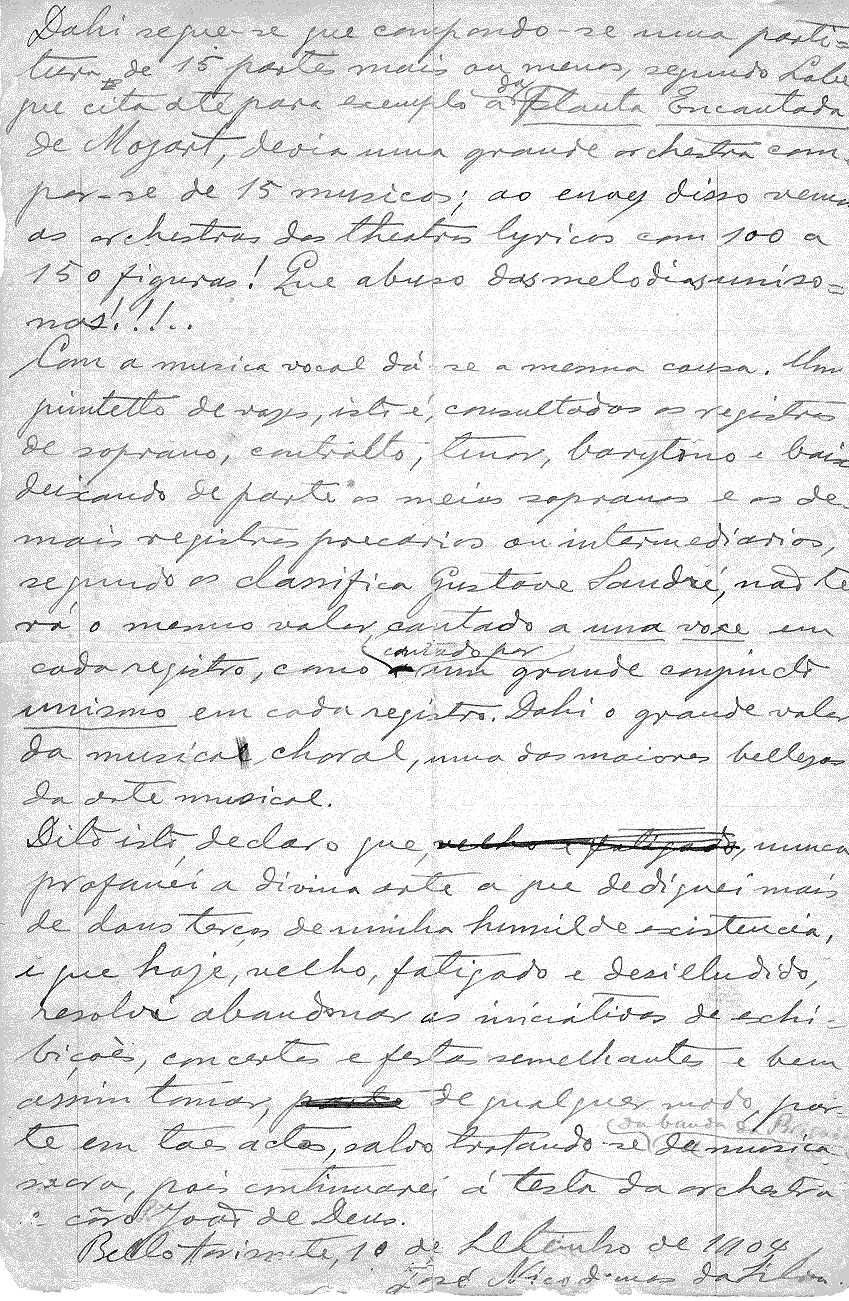 Dahi segue-se que compondo-se uma parti=
tura de 15 partes mais ou menos, segundo Labi
que cita até para exemplo a da Flauta Encantada
de Mozart, devia uma grande orchestra com-
por-se de 15 musicos; ao envez disso vemos
as orchestras dos theatros lyricos com 100 a
150 figuras! Que abuso das melodias uniso=
nas!!!..
Com a musica vocal dá-se a mesma cousa. Um
quintetto de vozes, isto é, consultados os registros
de soprano, contralto, tenor, barytono e baixo
deixando de parte os meios sopranos e os de-
mais registros precarios ou intermediarios,
segundo os classifica Gustave Landré, não te
rá o mesmo valor cantado a una voce em
cada registro, como cantado por um grande conjuncto
unisono em cada registro. Dahi o grande valor
da musica choral, uma das maiores bellezas
da arte musical.
Dito isto, declaro que, velho e fatigado, nunca
profanei a divina arte a que dediquei mais
de dous terços de minha humilde existencia,
e que hoje, velho, fatigado e desilludido,
resolvi abandonar as iniciativas de exhi-
bições, concertos e festas semelhantes e bem
assim tomar, parte de qualquer modo, par-
te em taes actos, salvo tratando-se da banda da Brigada da musica
sacra, pois continuarei á testa da orchestra
e côro João de Deus.
Bello Horisonte, 10 de Setembro de 1904
José Nicodemos da Silva.